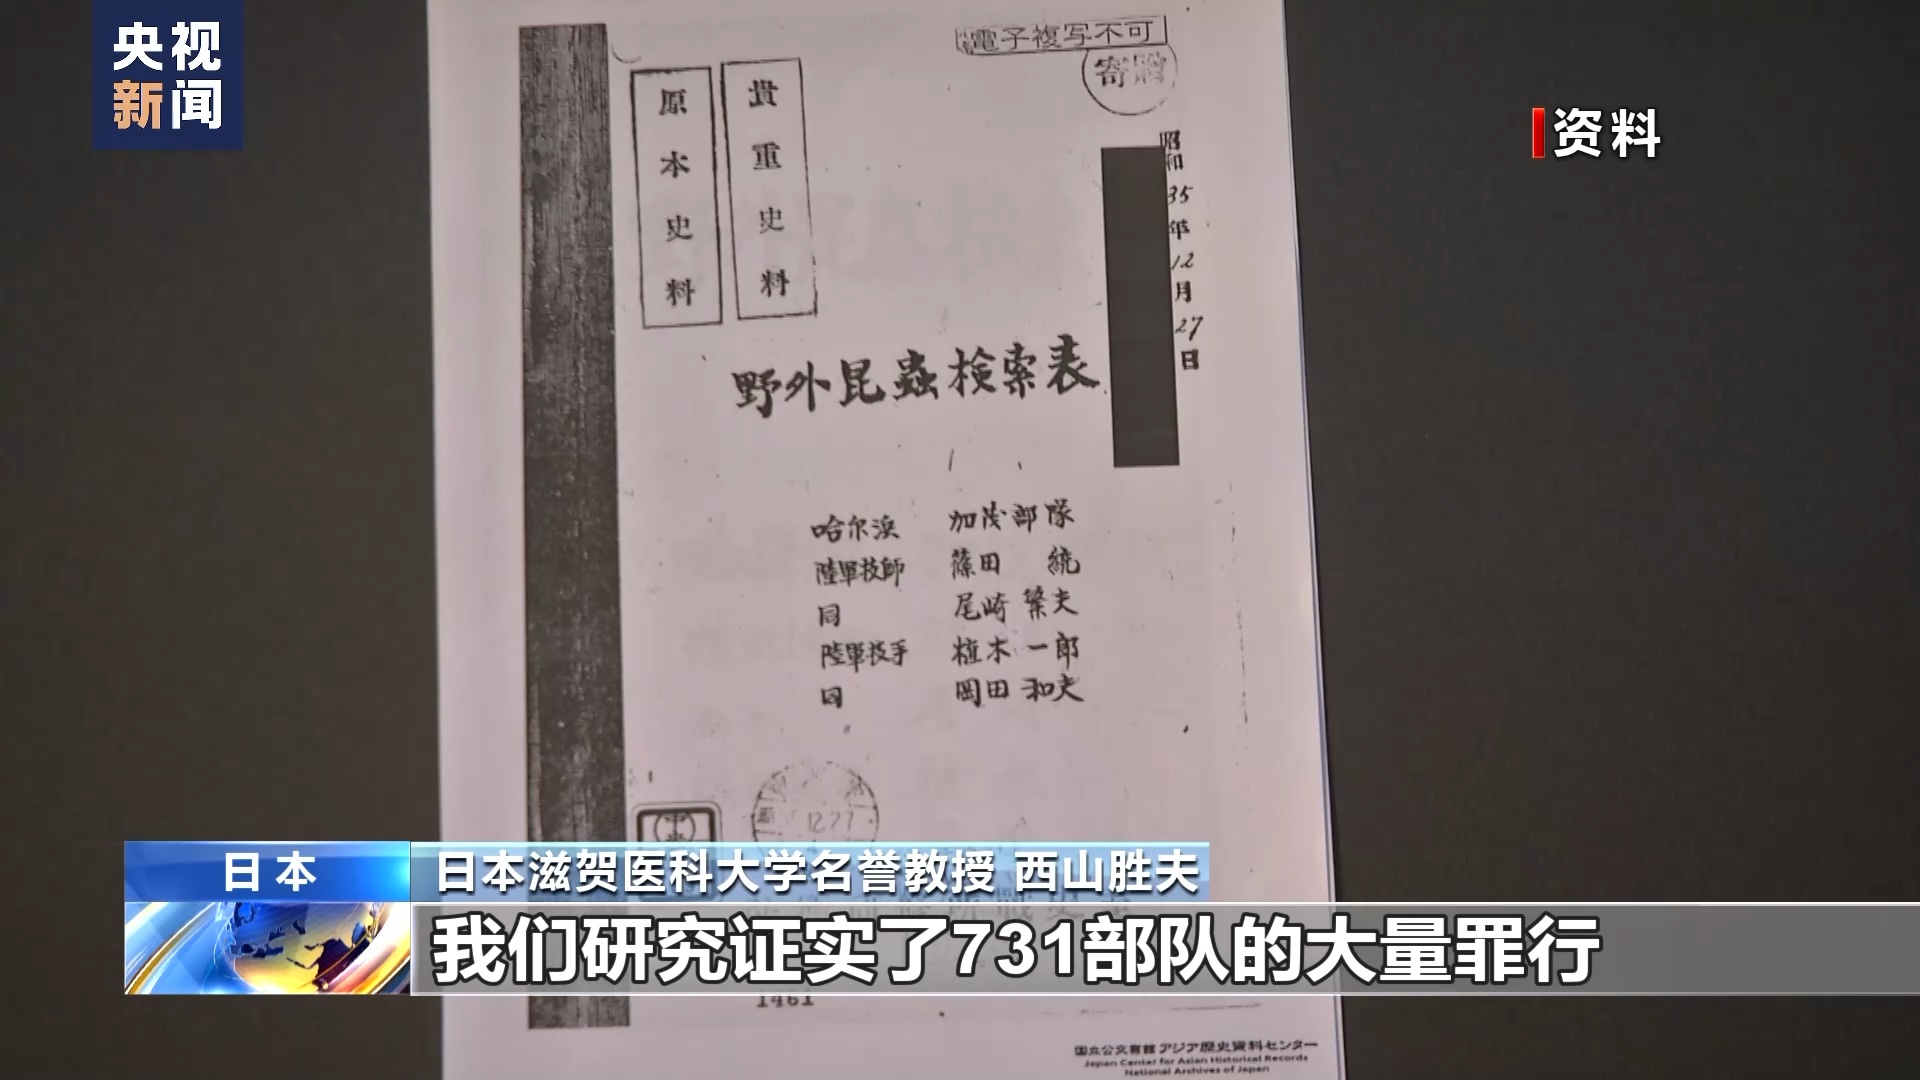 央视
新闻
资料
電子複写不可
寄贈
貴重史料
原本史料
昭和35年12月27日
野外昆蟲検索表
哈尔浜 加茂部隊
陸軍技師 篠田 統
同 尾崎 繁夫
陸軍技手 植木 一郎
同 岡田 和夫
12.27
日本
日本滋贺医科大学名誉教授 西山胜夫
我们研究证实了731部队的大量罪行
1461
国立公文書館 アジア歴史資料センター
Japan Center for Asian Historical Records
National Archives of Japan